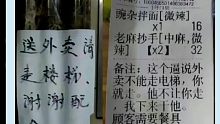 送外卖请
走楼梯,
谢谢配
豌杂拌面[微辣]
x1 16
老麻抄手[中麻,微
辣] 【x2】 32
备注:这个逼说外
卖不能走电梯,你
就走。他不让你走,
我下来十他。
顾客需要餐具